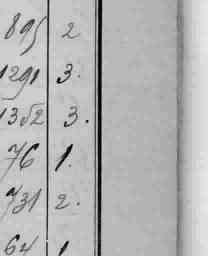 895 2
1291 3.
1352 3.
76 1.
731 2.
64 1